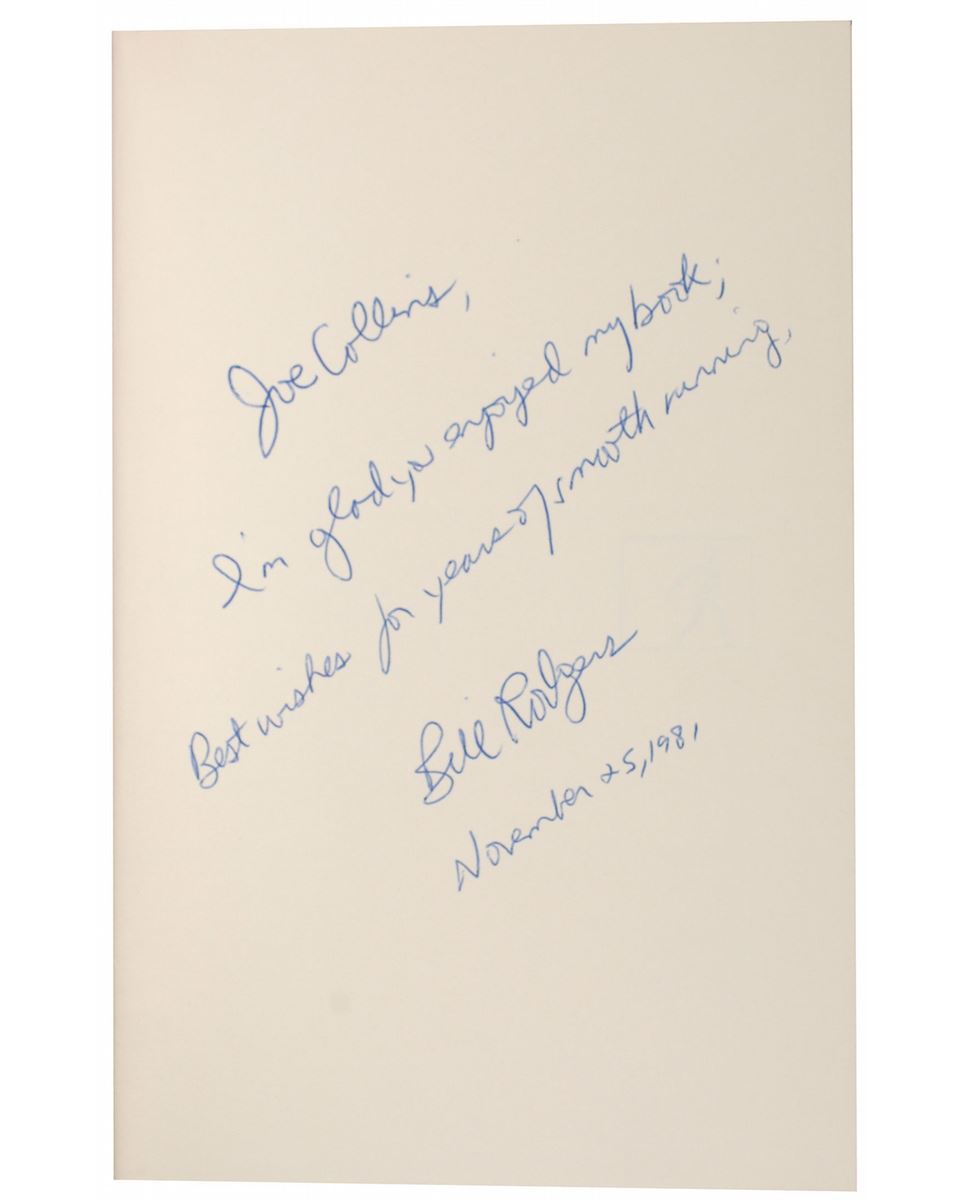 Joe Collins,
I'm glad you enjoyed my book;
Best wishes for years of smooth running,
Bill Rodgers
November 25, 1981